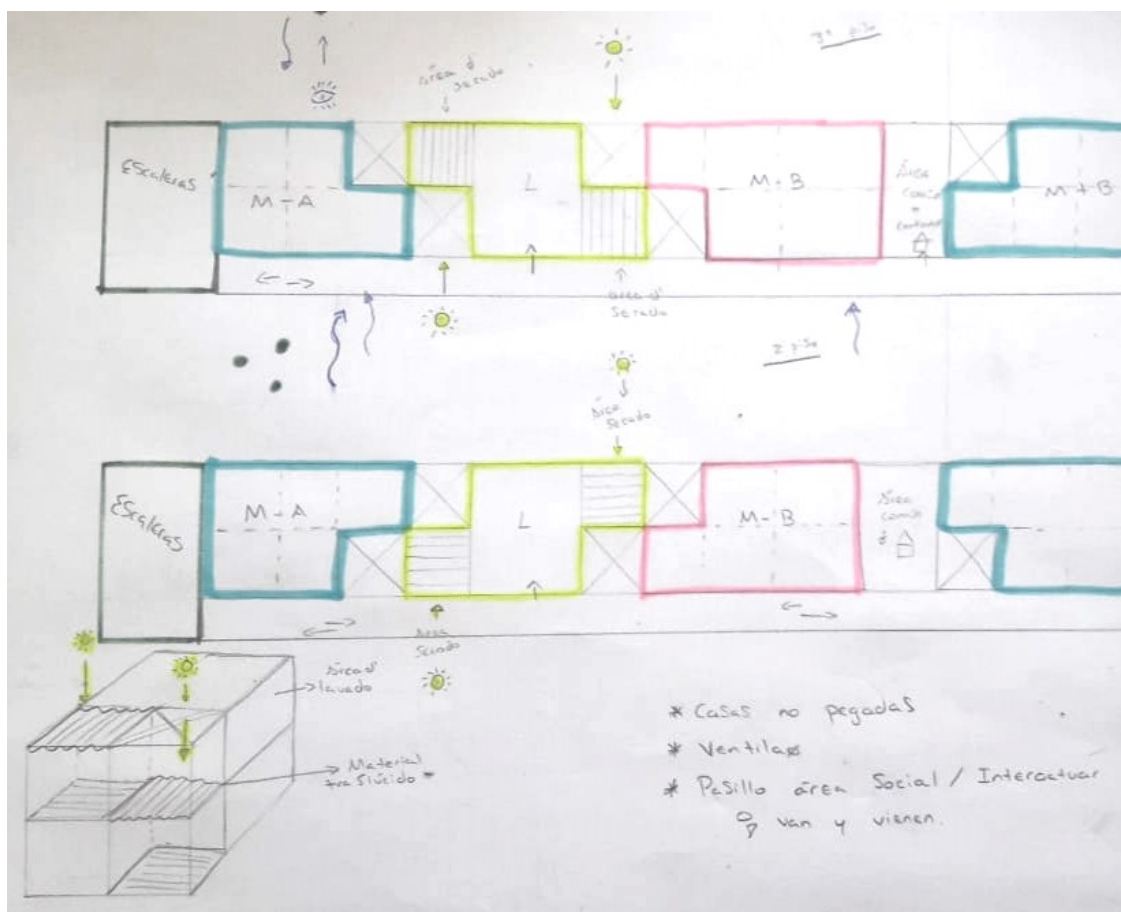 3º piso
Área d'
Secado
Escaleras
M - A
L
M - B
Área
común
M + B
Área d'
Secado
2 piso
Área
Secado
Escaleras
M - A
L
M - B
Área
común
Área
Secado
Área d'
lavado
Material
traslúcido
* Casas no pegadas
* Ventilas
* Pasillo área Social / Interactuar
van y vienen.